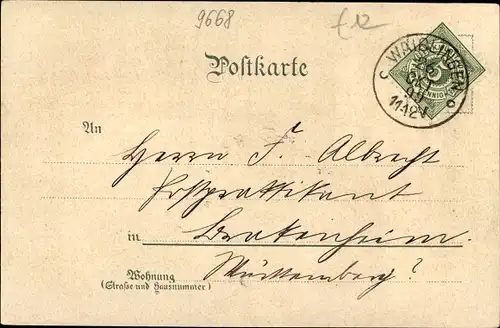 9668
£12
WAIBLINGEN
OKT
11-12V
5
PFENNIG
Postkarte
An
Herrn F. Albrecht
Postpraktikant
in Brakenheim.
Württemberg?
Wohnung
(Straße und Hausnummer)